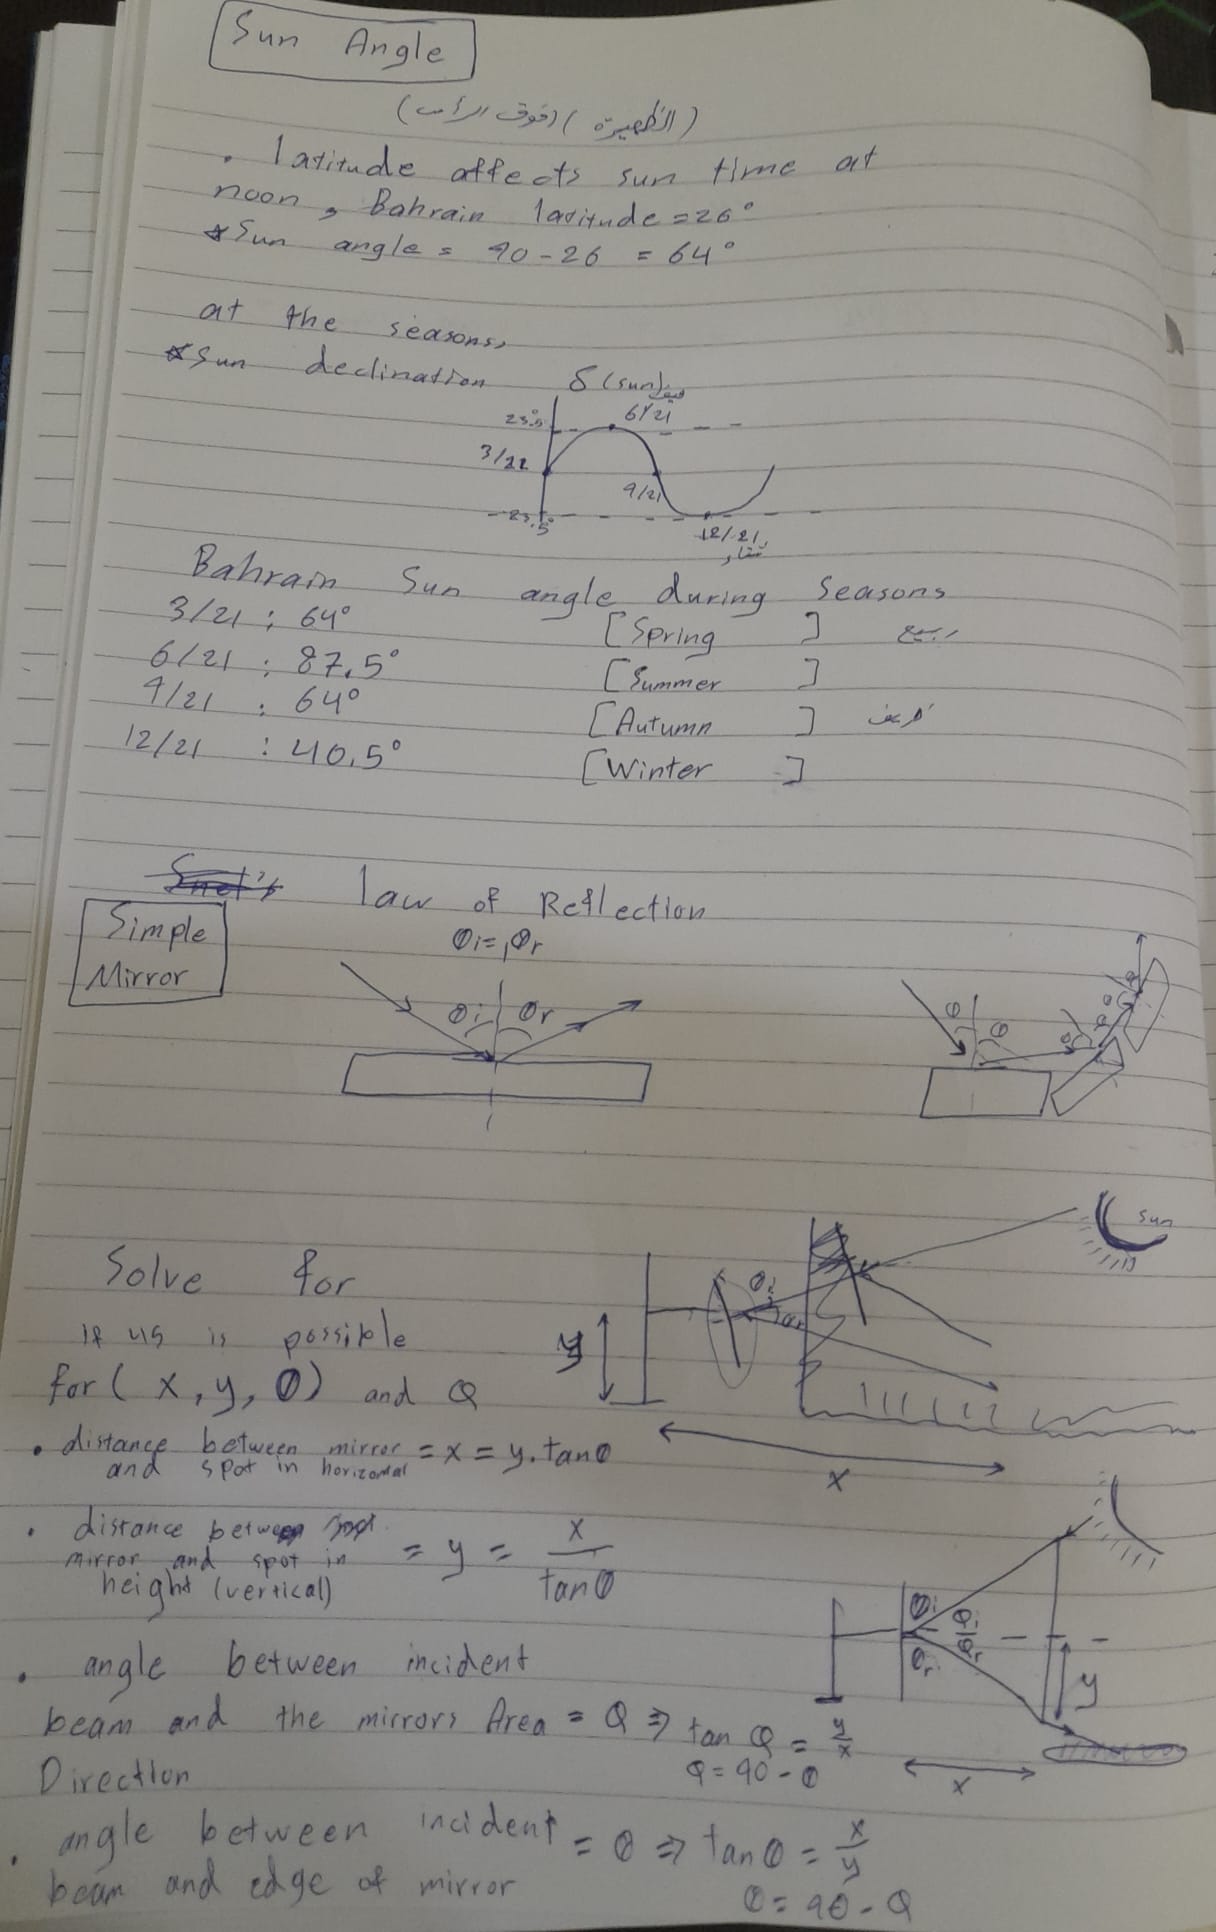 Sun Angle
(الظهيرة) (فوق الرأس)
. latitude affects sun time at
noon, Bahrain latitude = 26°
*Sun angle = 90 - 26 = 64°
at the seasons,
*Sun declination
δ (sun)
صيف
6/21
23.5°
3/21
9/21
-23.5°
12/21
شتاء
Bahrain Sun angle during Seasons
3/21 : 64° [Spring] ربيع
6/21 : 87.5° [Summer]
9/21 : 64° [Autumn] خريف
12/21 : 40.5° [Winter]
Snel's law of Reflection
Simple
Mirror
θi = θr
θi θr
θ θ θ θ θ θ
Sun
Solve for
is possible
for (x, y, θ) and Q
θi
y
x
. distance between mirror = x = y. tanθ
and spot in horizontal
. distance between
mirror and spot in = y = x / tanθ
height (vertical)
θi Qi
θr Qr
y
x
. angle between incident
beam and the mirrors Area = Q ⇒ tan Q = y/x
Direction Q = 90 - θ
. angle between incident = θ ⇒ tanθ = x/y
beam and edge of mirror θ = 90 - Q